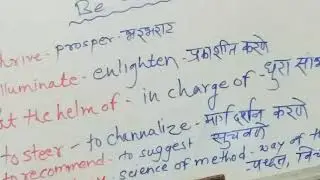 Be
hrive - prosper - भरभराट
lluminate - enlighten - प्रकाशीत करणे
t the helm of - in charge of - धुरा सां
to steer - to channalize - मार्गदर्शन करणे
to recommend - to suggest सुचवणे
y science of method - way of t
पध्दत, वि